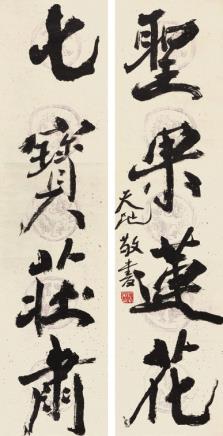 聖果蓮花
七寶莊肅
天地敬書